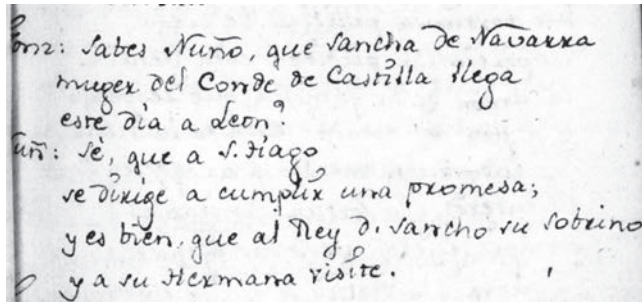 Gonz: Sabes Nuño, que Sancha de Navarra
muger del Conde de Castilla llega
este dia a Leon?
Nuñ: sé, que a S.tiago
se dirige a cumplir una promesa;
y es bien, que al Rey d. Sancho su sobrino
y a su Hermana visite.